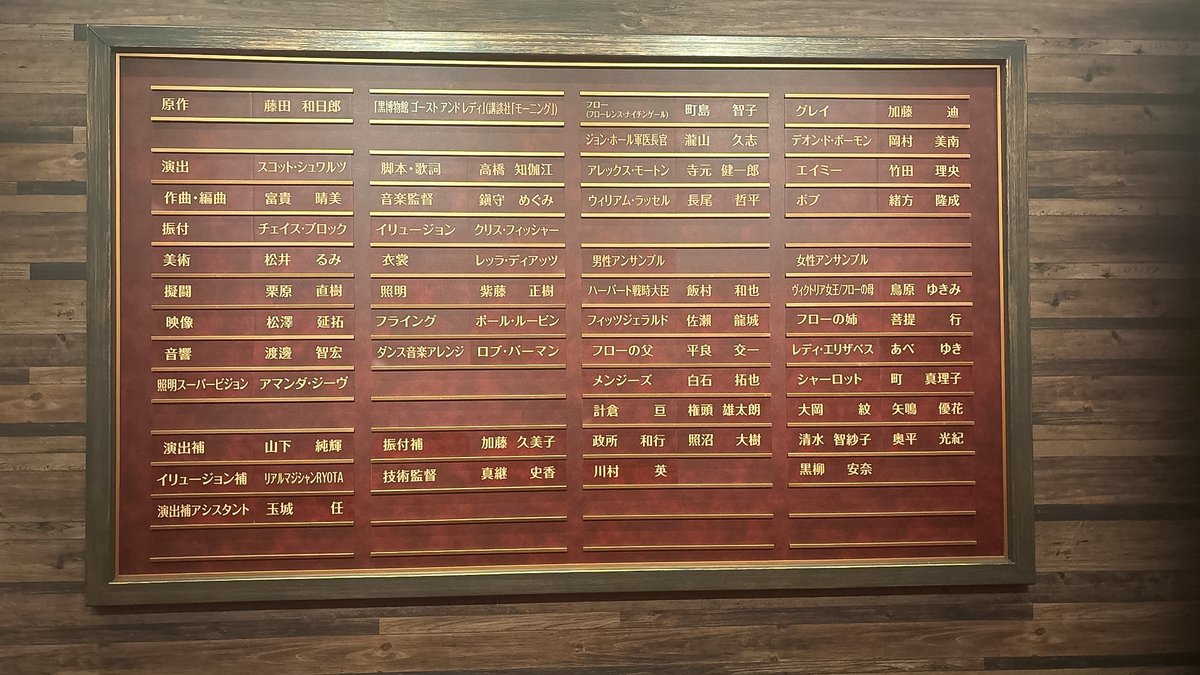 原作 藤田 和日郎
「黒博物館 ゴースト アンド レディ」(講談社「モーニング」)
演出 スコット・シュワルツ
脚本・歌詞 高橋 知伽江
作曲・編曲 富貴 晴美
音楽監督 鎮守 めぐみ
振付 チェイス・ブロック
イリュージョン クリス・フィッシャー
美術 松井 るみ
衣裳 レッラ・ディアッツ
擬闘 栗原 直樹
照明 紫藤 正樹
映像 松澤 延拓
フライング ポール・ルービン
音響 渡邊 智宏
ダンス音楽アレンジ ロブ・バーマン
照明スーパービジョン アマンダ・ジーヴ
演出補 山下 純輝
振付補 加藤 久美子
イリュージョン補 リアルマジシャンRYOTA
技術監督 真継 史香
演出補アシスタント 玉城 任
フロー
(フローレンス・ナイチンゲール) 町島 智子
グレイ 加藤 迪
ジョン・ホール軍医長官 瀧山 久志
デオン・ド・ボーモン 岡村 美南
アレックス・モートン 寺元 健一郎
エイミー 竹田 理央
ウィリアム・ラッセル 長尾 哲平
ボブ 緒方 隆成
男性アンサンブル
ハーバート戦時大臣 飯村 和也
フィッツジェラルド 佐瀬 龍城
フローの父 平良 交一
メンジーズ 白石 拓也
計倉 亘 権頭 雄太朗
政所 和行 照沼 大樹
川村 英
女性アンサンブル
ヴィクトリア女王/フローの母 鳥原 ゆきみ
フローの姉 菩提 行
レディ・エリザベス あべ ゆき
シャーロット 町 真理子
大岡 紋 矢鳴 優花
清水 智紗子 奥平 光紀
黒柳 安奈